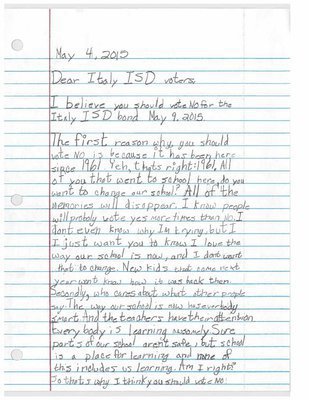 May 4, 2015
Dear Italy ISD voters,
I believe you should vote NO for the
Italy ISD bond May 9, 2015.
The first reason why you should
vote NO is because it has been here
since 1961. Yeh, thats right:1961. All
of you that went to school here, do you
want to change our school? All of the
memories will disappear. I know people
will probaly vote yes more times than No. I
dont even know why Im trying, but I
I just want you to know I love the
way our school is now, and I dont want
that to change. New kids that come next
year wont know how it was back then.
Secondly, who cares about what other people
say. The way our school is now has everbody
smart. And the teachers have their attention.
Every body is learning Sure
parts of our school arent safe, but school
is a place for learning and none of
this includes us learning. Am I right?
So thats why I think you should vote NO!